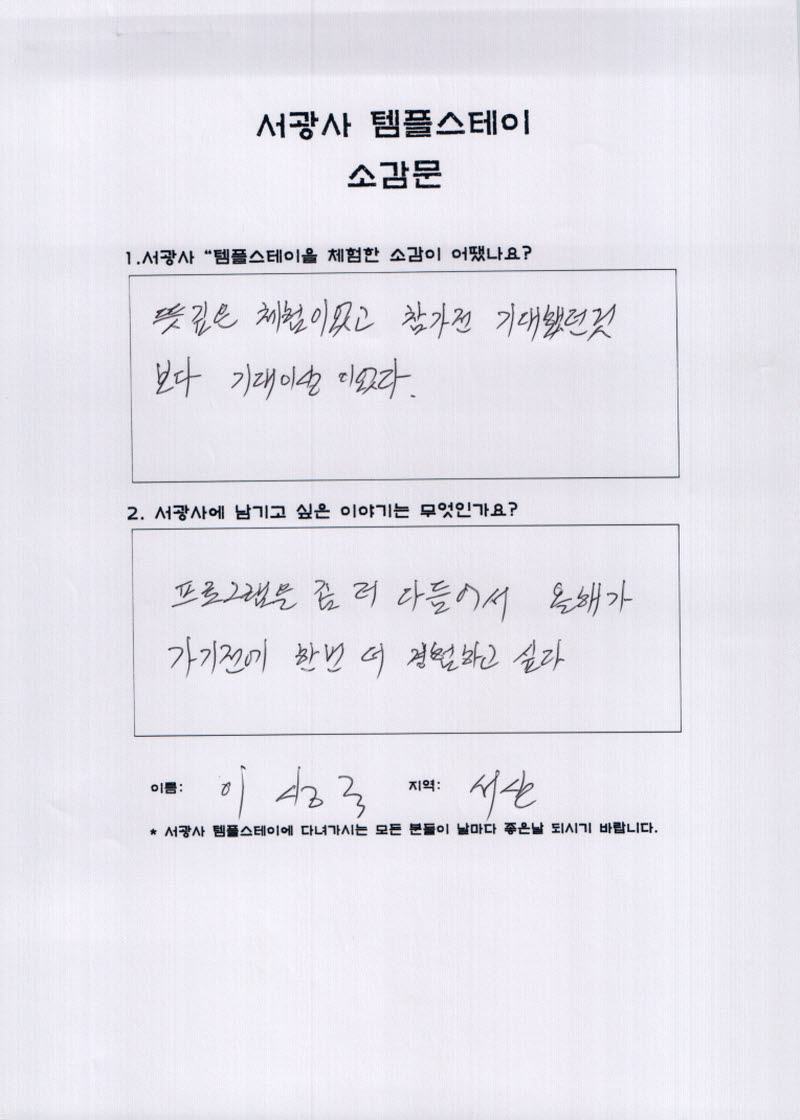 서광사 템플스테이
소감문
1.서광사 "템플스테이을 체험한 소감이 어땠나요?
뜻깊은 체험이였고 참가전 기대했던것
보다 기대이상 이였다.
2. 서광사에 남기고 싶은 이야기는 무엇인가요?
프로그램을 좀 더 다듬어서 올해가
가기전에 한번 더 경험하고 싶다
이름: 이 상국 지역: 서산
* 서광사 템플스테이에 다녀가시는 모든 분들이 날마다 좋은날 되시기 바랍니다.